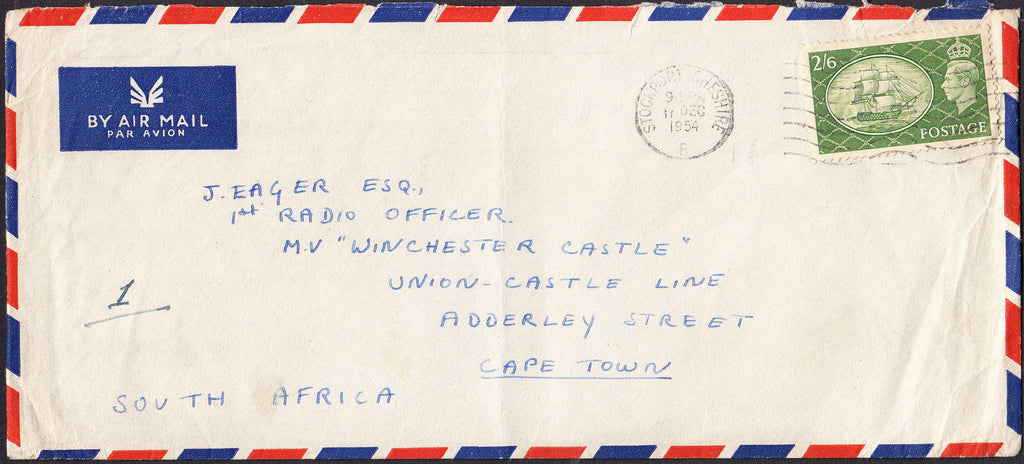 2/6
POSTAGE
STOCKPORT CHESHIRE
17 DEC
1954
B
BY AIR MAIL
PAR AVION
J. EAGER ESQ.,
1st RADIO OFFICER.
M.V "WINCHESTER CASTLE"
UNION-CASTLE LINE
ADDERLEY STREET
CAPE TOWN
1
SOUTH AFRICA